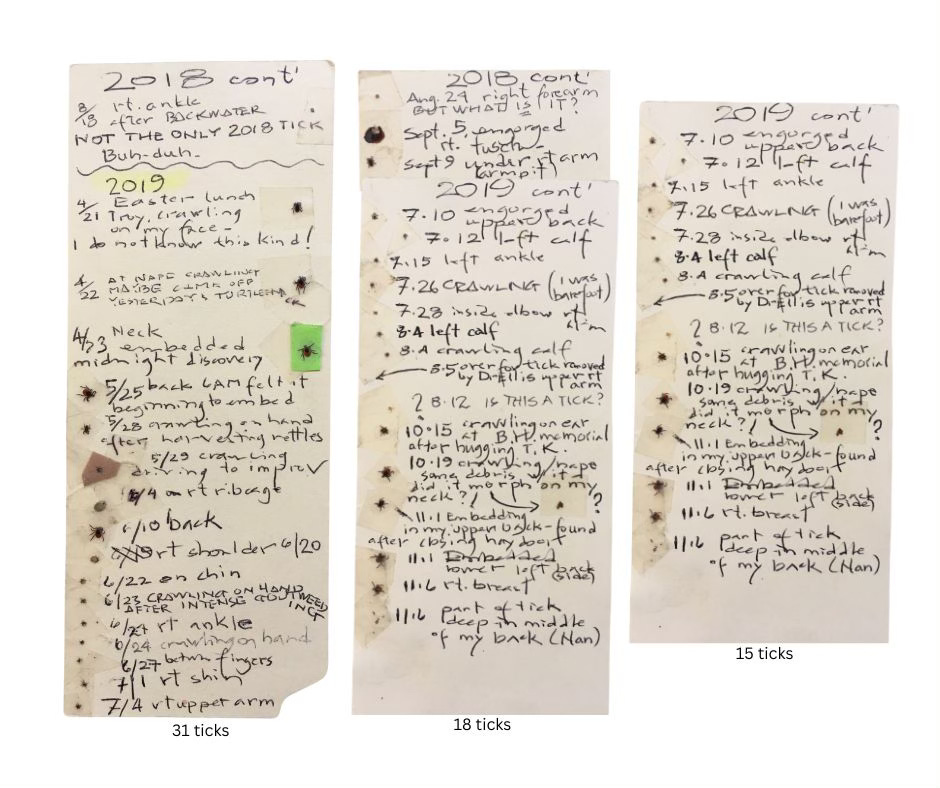 2018 cont'
8/18 rt. ankle
after BACKWATER
NOT THE ONLY 2018 TICK
Buh-duh-
2019
4/21 Easter lunch
Troy, crawling
on my face-
I do not know this kind!
4/22 AT NAPE CRAWLING
MAYBE CAME OFF
YESTERDAY'S
4/23 Neck
embedded
midnight discovery
5/25 back 6AM felt it
beginning to embed
5/28 crawling on hand
after harvesting nettles
5/29 crawling
driving to improv
6/4 rt ribcage
6/10 back
rt shoulder 6/20
6/22 on chin
6/23 CRAWLING ON HAND
AFTER INTENSE GOUTWEED
ING
6/24 rt ankle
6/24 crawling on hand
6/27 between fingers
7/1 rt shin
7/4 rt upper arm
31 ticks
2018 cont'
Aug. 24 right forearm
BUT WHAT IS IT?
Sept. 5, engorged
rt. tusch-
Sept 9 under rt arm
(armpit)
2019 cont'
7.10 engorged
upper back
7.12 left calf
7.15 left ankle
7.26 CRAWLING (I was
barefoot)
7.28 inside elbow rt
arm
8.4 left calf
8.4 crawling calf
8.5 over for tick removed
by Dr. Ellis upper rt
arm
? 8.12 IS THIS A TICK?
10.15 crawling on ear
at B.H. memorial
after hugging T.K.
10.19 crawling/nape
some debris w/ it-
did it morph on my
neck?! ?
11.1 Embedding
in my upper back-found
after closing hay door
11.1 Embedded
lower left back
(side)
11.6 rt. breast
11.16 part of tick
deep in middle
of my back (Nan)
18 ticks
2019 cont'
7.10 engorged
upper back
7.12 left calf
7.15 left ankle
7.26 CRAWLING (I was
barefoot)
7.28 inside elbow rt
arm
8.4 left calf
8.4 crawling calf
8.5 over for tick removed
by Dr. Ellis upper rt
arm
? 8.12 IS THIS A TICK?
10.15 crawling on ear
at B.H. memorial
after hugging T.K.
10.19 crawling/nape
some debris w/ it-
did it morph on my
neck?! ?
11.1 Embedding
in my upper back-found
after closing hay door
11.1 Embedded
lower left back
(side)
11.6 rt. breast
11.16 part of tick
deep in middle
of my back (Nan)
15 ticks